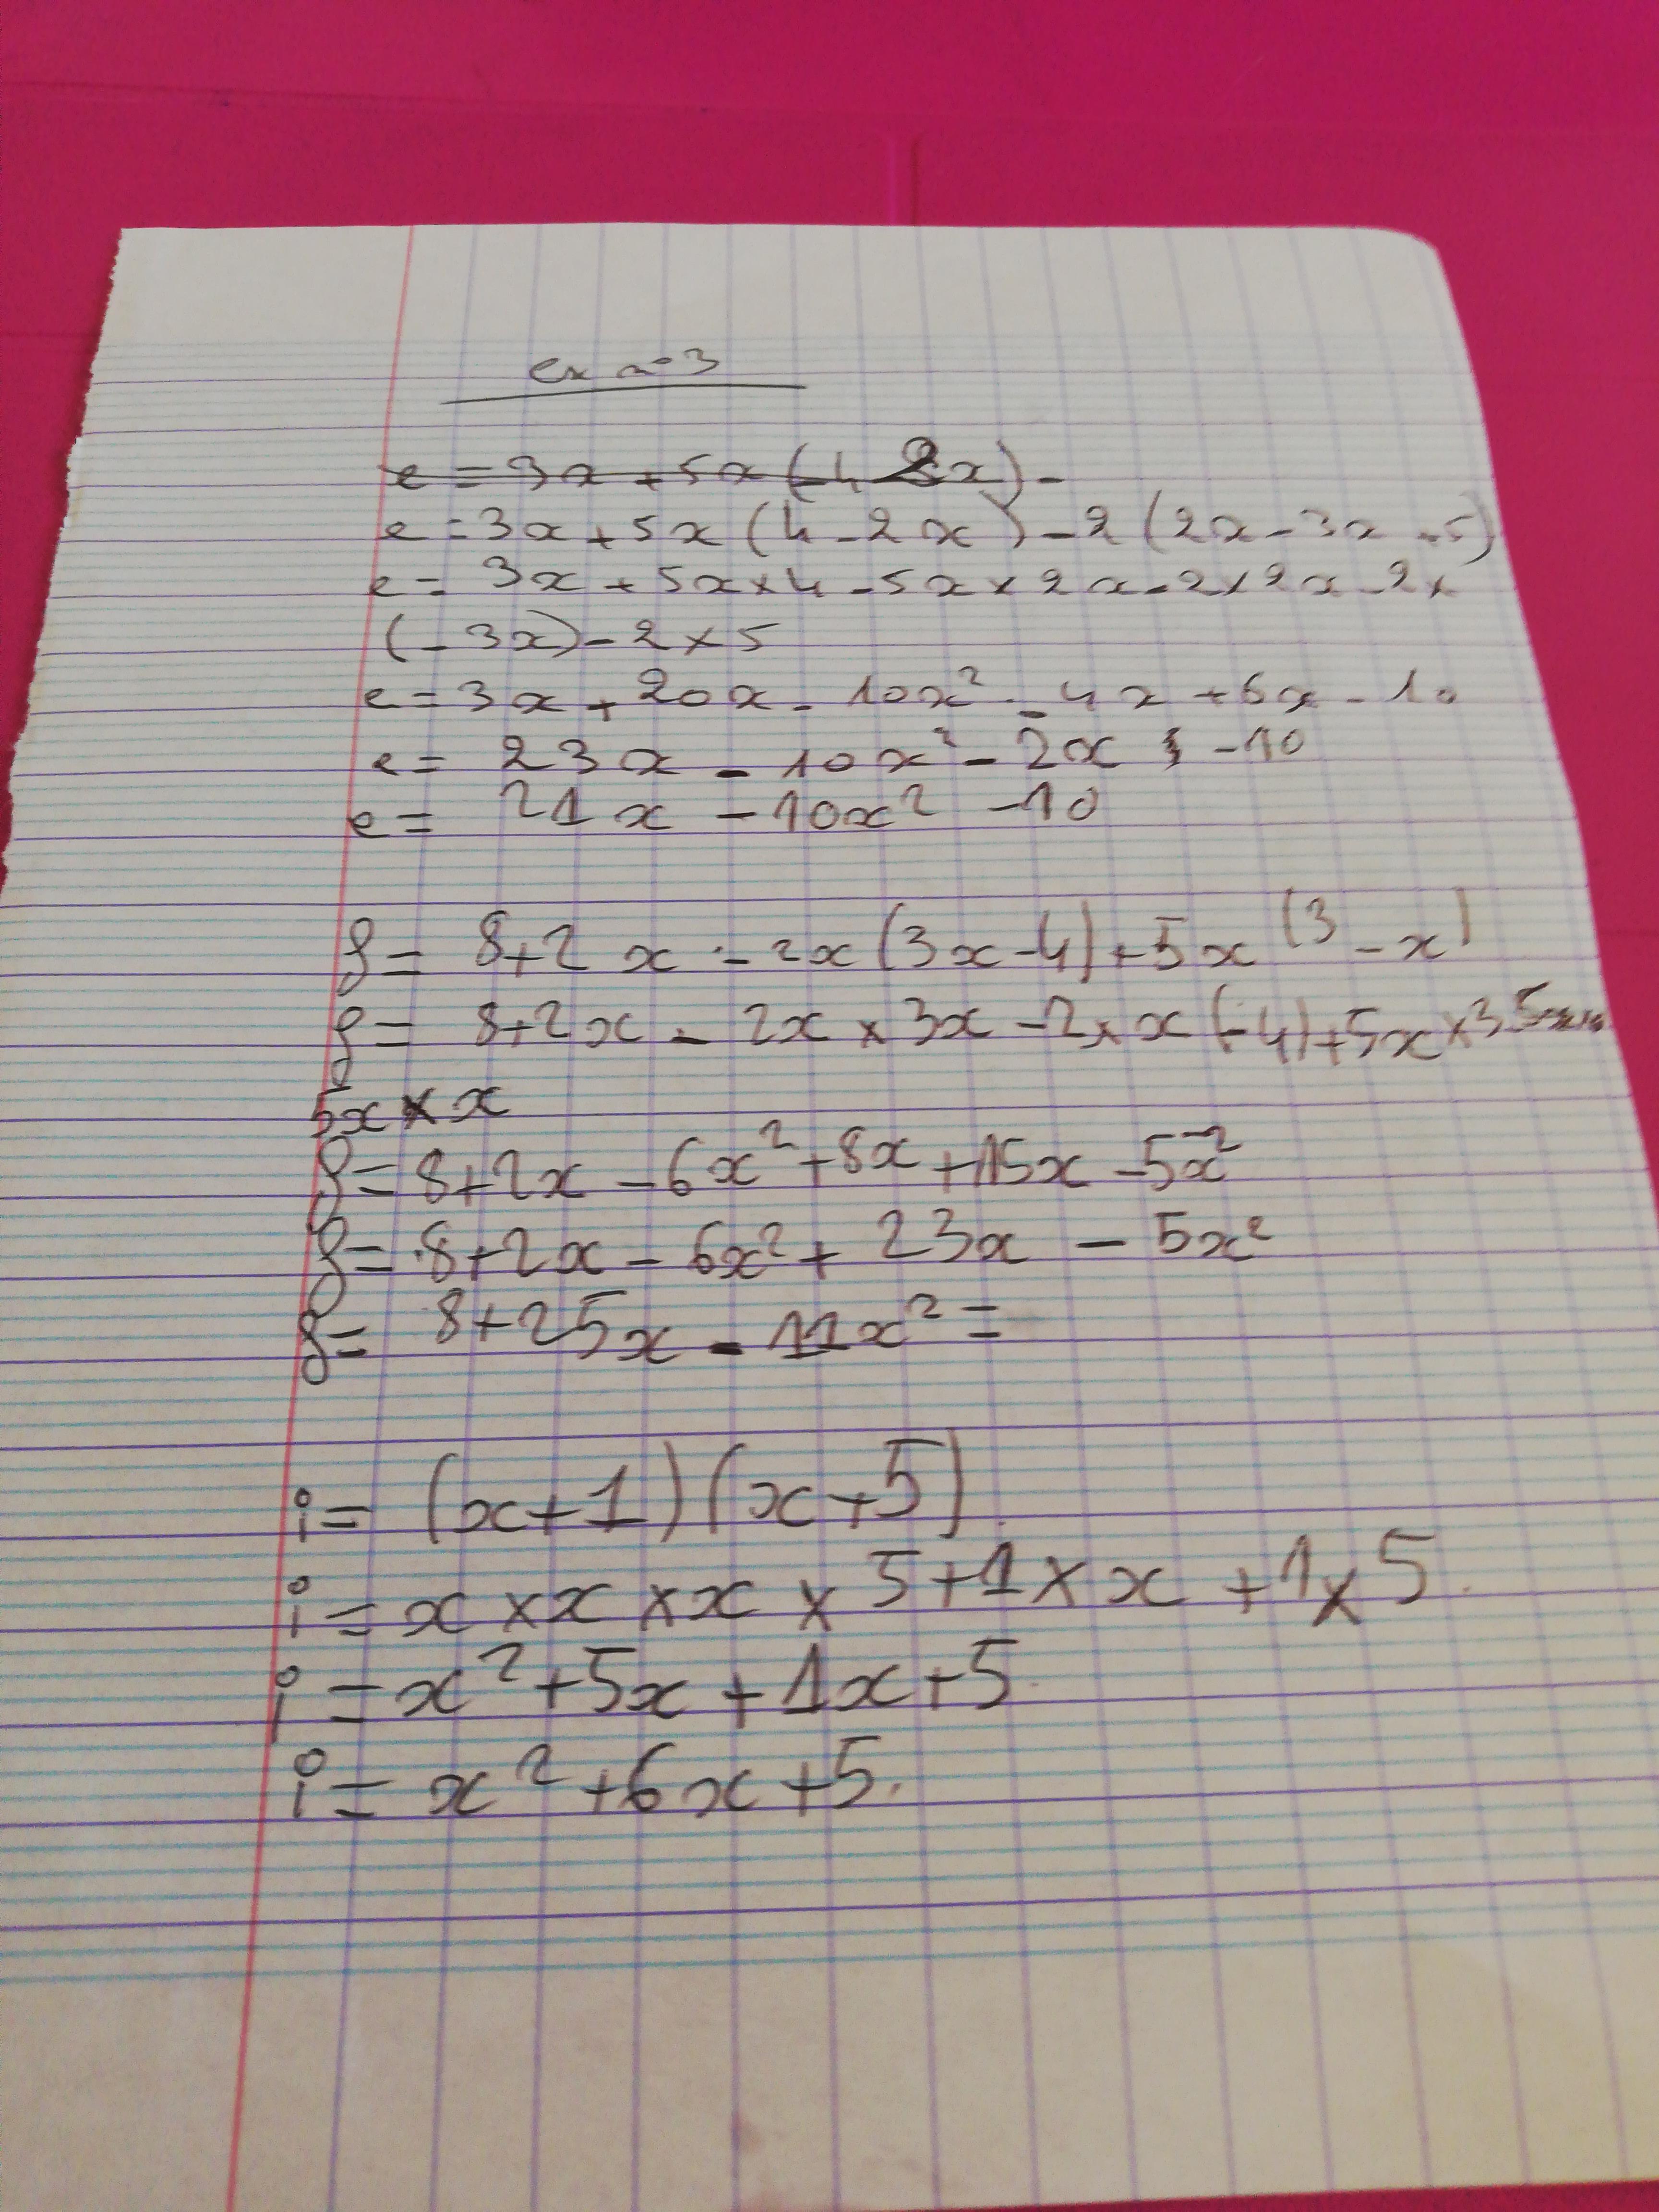 ex n°3
e = 3x + 5x (4 - 2x) - 2 (2x - 3x + 5)
e = 3x + 5x × 4 - 5x × 2x - 2 × 2x - 2 ×
(- 3x) - 2 × 5
e = 3x + 20x - 10x² - 4x + 6x - 10
e = 23x - 10x² - 2x - 10
e = 21x - 10x² - 10
f = 8 + 2x - 2x (3x - 4) + 5x (3 - x)
f = 8 + 2x - 2x × 3x - 2 × x (-4) + 5x × 3
5x × x
f = 8 + 2x - 6x² + 8x + 15x - 5x²
f = 8 + 2x - 6x² + 23x - 5x²
f = 8 + 25x - 11x² =
i = (x + 1) (x + 5)
i = x × x × x × 5 + 1 × x + 1 × 5.
i = x² + 5x + 1x + 5.
i = x² + 6x + 5.